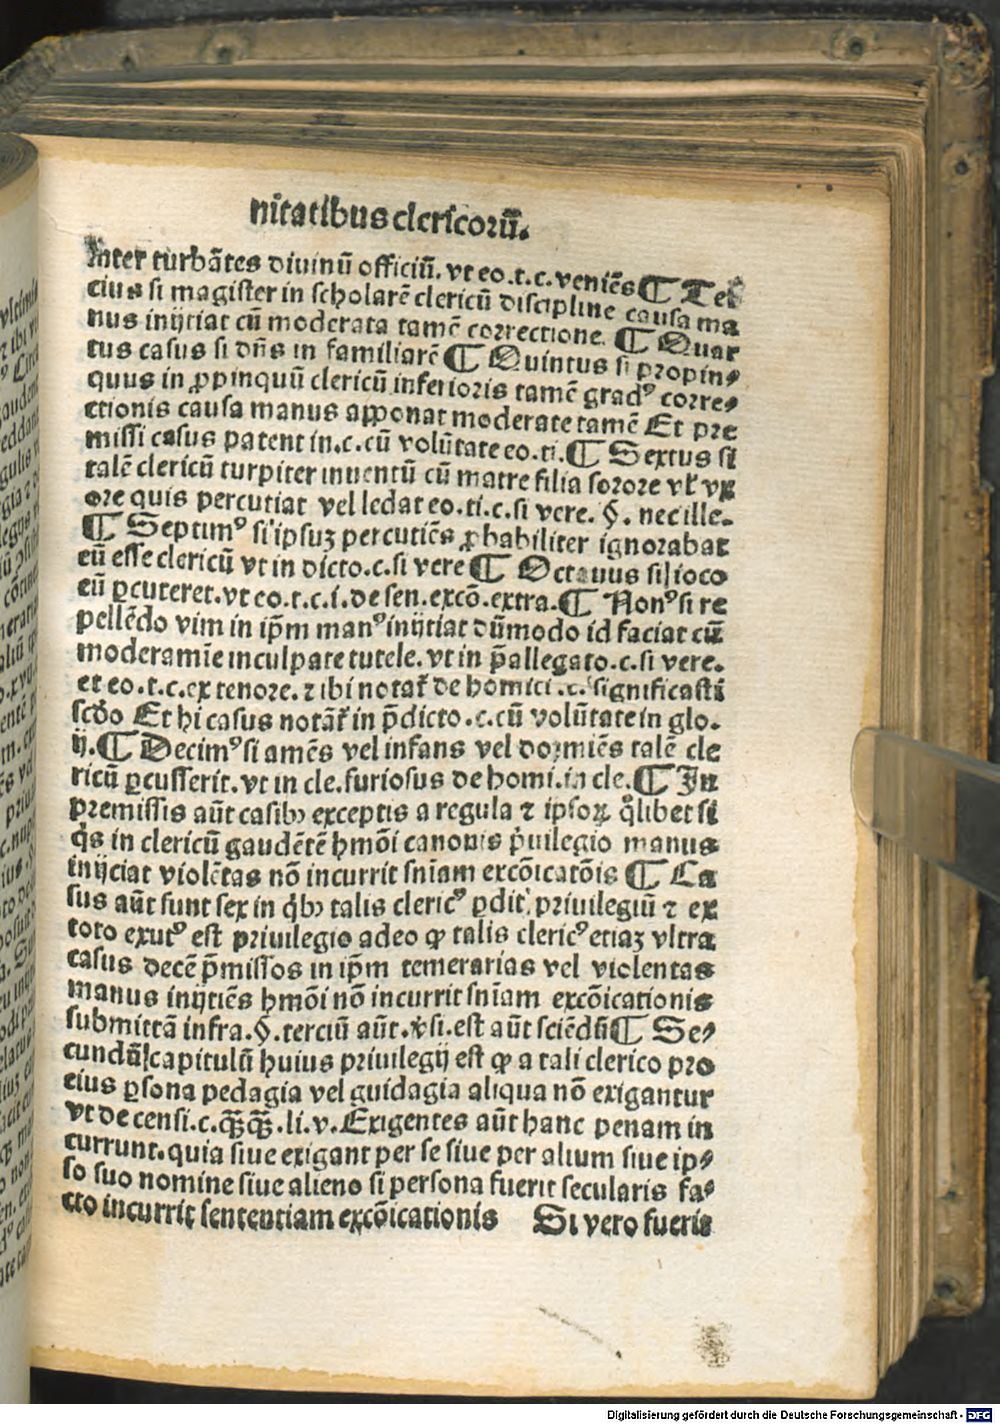 nitatibus clericorū.
Inter turbātes diuinū officiū. vt eo.t.c. veniēs ¶ Ter
cius si magister in scholarē clericū discipline causa ma
nus inijciat cū moderata tamē correctione. ¶ Quar
tus casus si dn̄s in familiarē ¶ Quintus si propin⸗
quus in ꝓpinquū clericū inferioris tamē gradꝰ corre⸗
ctionis causa manus apponat moderate tamē Et pre
missi casus patent in.c.cū volūtate eo.ti. ¶ Sextus si
talē clericū turpiter inuentū cū matre filia sorore vł vx
ore quis percutiat vel ledat eo.ti.c.si vere. §. nec ille.
¶ Septimꝰ si ipsuȝ percutiēs ꝓbabiliter ignorabat
eū esse clericū vt in dicto.c.si vere ¶ Octauus si ioco
eū ꝑcuteret.vt eo.t.c.i.de sen.excō.extra. ¶ Nonꝰ si re
pellēdo vim in ip̄m manꝰ inijciat dūmodo id faciat cū
moderamīe inculpate tutele.vt in p̄allegato.c.si vere.
et eo.t.c.ex tenore. ⁊ ibi notať de homici.c. significasti
scd̄o Et hi casus notāť in p̄dicto.c.cū volūtate in glo.
ij. ¶ Decimꝰ si amēs vel infans vel dormiēs talē cle
ricū ꝑcusserit.vt in cle.furiosus de homi.in cle. ¶ In
premissis aūt casibꝰ exceptis a regula ⁊ ipsoꝝ q̄libet si
q̇s in clericū gaudētē hm̄oi canonis ṗuilegio manus
inijciat violētas nō incurrit sn̄iam excōicatōis ¶ Ca
sus aūt sunt sex in q̇bꝰ talis clericꝰ ꝑdit priuilegiū ⁊ ex
toto exutꝰ est priuilegio adeo ꝙ talis clericꝰ etiaȝ vltra
casus decē p̄missos in ip̄m temerarias vel violentas
manus inijciēs hm̄oi nō incurrit sn̄iam excōicationis
submittā infra. §. terciū aūt. ℣ si. est aūt sciēdū ¶ Se⸗
cundū capitulū huius priuilegij est ꝙ a tali clerico pro
eius ꝑsona pedagia vel guidagia aliqua nō exigantur
vt de censi.c.qq̄qq̄.li.v. Exigentes aūt hanc penam in
currunt.quia siue exigant per se siue per alium siue ip⸗
so suo nomine siue alieno si persona fuerit secularis fa⸗
cto incurrit sententiam excōicationis Si vero fueris
Digitalisierung gefördert durch die Deutsche Forschungsgemeinschaft - DFG